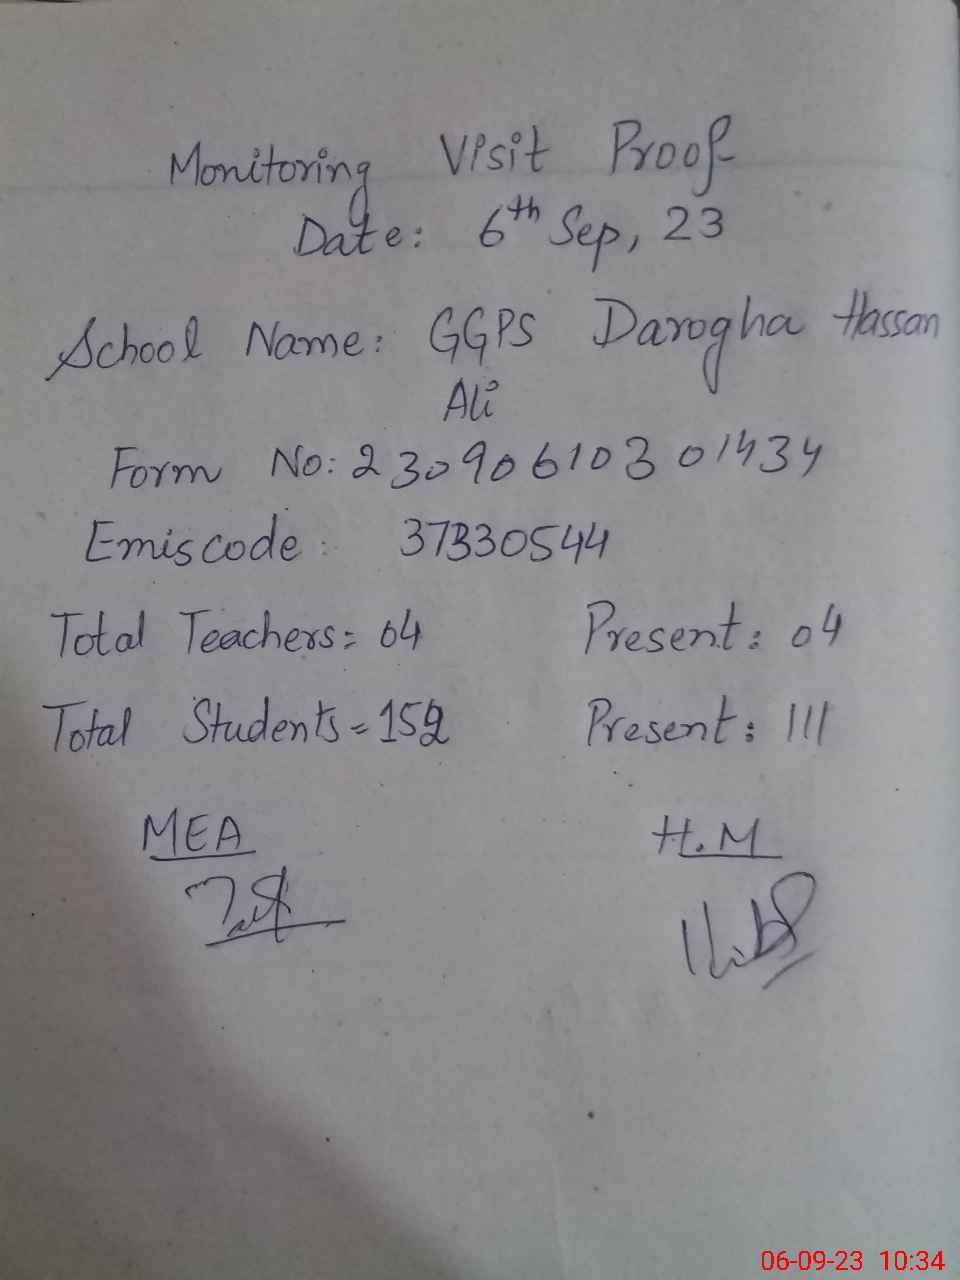 Monitoring Visit Proof
Date: 6th Sep, 23
School Name: GGPS Darogha Hassan
Ali
Form No: 23090610301434
Emiscode: 37330544
Total Teachers= 04 Present: 04
Total Students= 152 Present: 111
MEA H.M
06-09-23 10:34